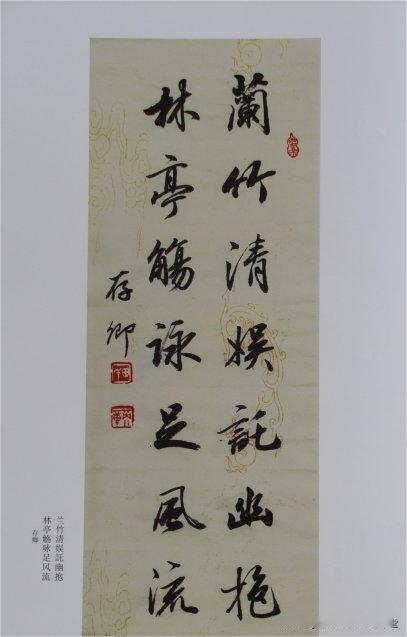 蘭竹清娛託幽抱
林亭觴詠足風流
存卿
兰竹清娱託幽抱
林亭觞咏足风流
存卿